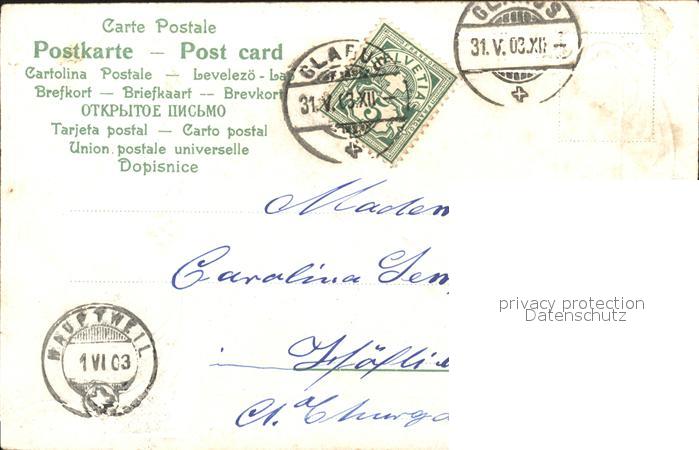 Carte Postale
Postkarte — Post card
Cartolina Postale — Levelező - La
Brefkort — Briefkaart — Brevkort
ОТКРЫТОЕ ПИСЬМО
Tarjeta postal — Carto postal
Union postale universelle
Dopisnice
GLARUS
31. V. 03. XII
HELVETIA
GLARUS
31. V. 03. XII
Madem
Carolina Sen
privacy protection
Datenschutz
HAUPTWEIL
1 VI 03
Ct. Thurga